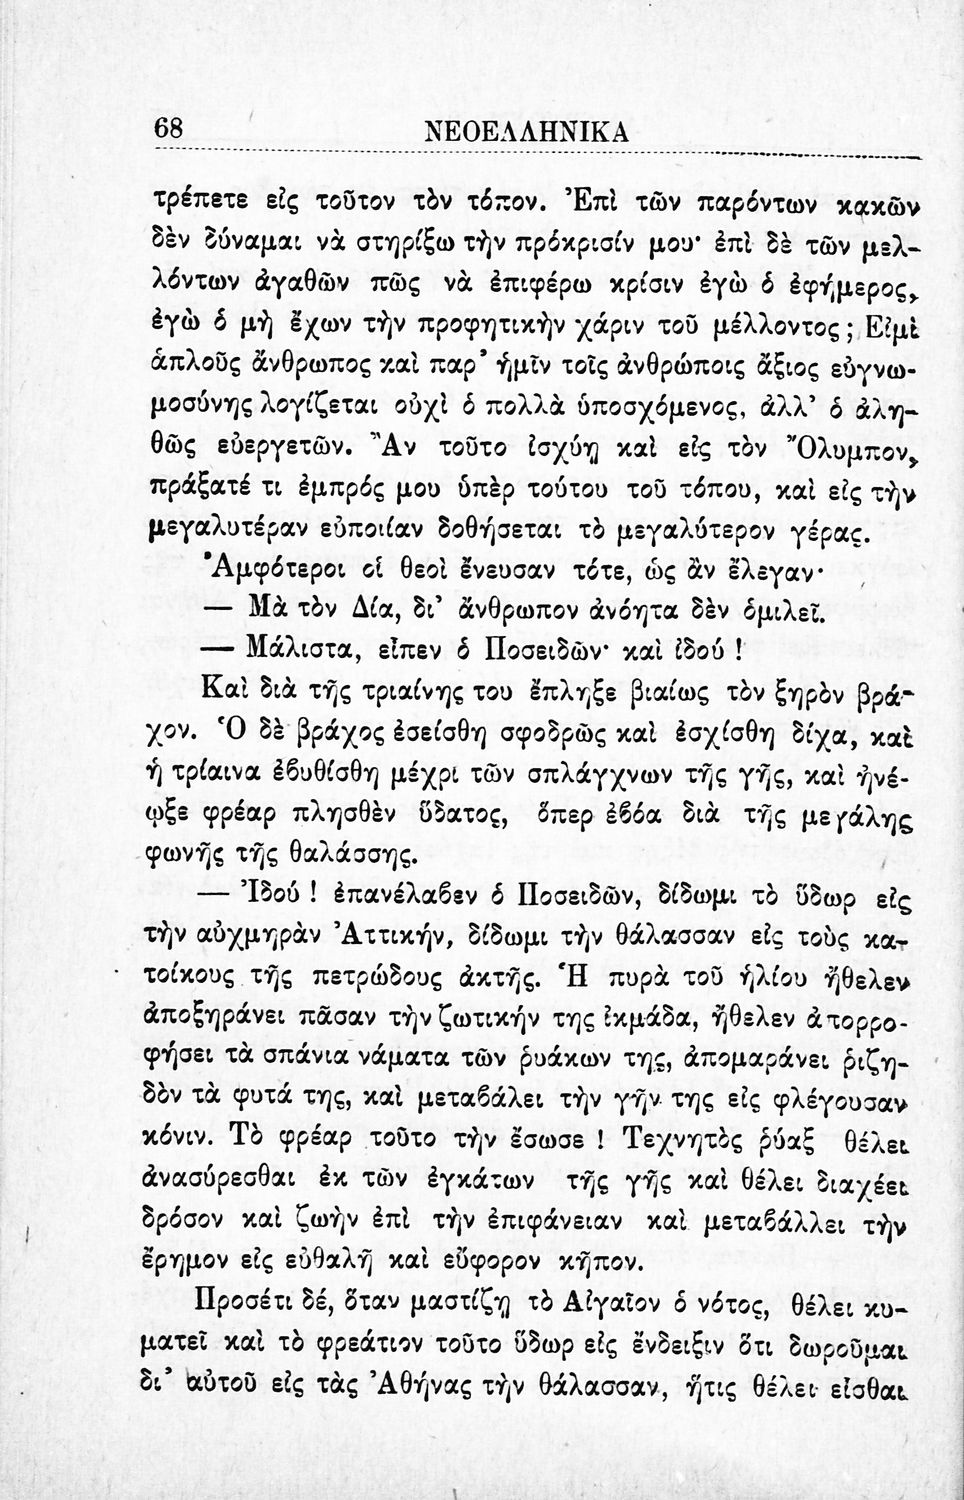 68
ΝΕΟΕΛΛΗΝΙΚΑ
τρέπετε εἰς τοῦτον τὸν τόπον. Ἐπὶ τῶν παρόντων κακῶν
δὲν δύναμαι νὰ στηρίξω τὴν πρόκρισίν μου· ἐπὶ δὲ τῶν μελ-
λόντων ἀγαθῶν πῶς νὰ ἐπιφέρω κρίσιν ἐγὼ ὁ ἐφήμερος,
ἐγὼ ὁ μὴ ἔχων τὴν προφητικὴν χάριν τοῦ μέλλοντος; Εἰμὶ
ἁπλοῦς ἄνθρωπος καὶ παρ’ ἡμῖν τοῖς ἀνθρώποις ἄξιος εὐγνω-
μοσύνης λογίζεται οὐχὶ ὁ πολλὰ ὑποσχόμενος, ἀλλ’ ὁ ἀλη-
θῶς εὐεργετῶν. Ἂν τοῦτο ἰσχύῃ καὶ εἰς τὸν Ὄλυμπον,
πράξατέ τι ἐμπρός μου ὑπὲρ τούτου τοῦ τόπου, καὶ εἰς τὴν
μεγαλυτέραν εὐποιίαν δοθήσεται τὸ μεγαλύτερον γέρας.
Ἀμφότεροι οἱ θεοὶ ἔνευσαν τότε, ὡς ἂν ἔλεγαν·
— Μὰ τὸν Δία, δι’ ἄνθρωπον ἀνόητα δὲν ὁμιλεῖ.
— Μάλιστα, εἶπεν ὁ Ποσειδῶν· καὶ ἰδού !
Καὶ διὰ τῆς τριαίνης του ἔπληξε βιαίως τὸν ξηρὸν βρά-
χον. Ὁ δὲ βράχος ἐσείσθη σφοδρῶς καὶ ἐσχίσθη δίχα, καὶ
ἡ τρίαινα ἐβυθίσθη μέχρι τῶν σπλάγχνων τῆς γῆς, καὶ ἠνέ-
ῳξε φρέαρ πλησθὲν ὕδατος, ὅπερ ἐβόα διὰ τῆς μεγάλης
φωνῆς τῆς θαλάσσης.
— Ἰδού ! ἐπανέλαβεν ὁ Ποσειδῶν, δίδωμι τὸ ὕδωρ εἰς
τὴν αὐχμηρὰν Ἀττικήν, δίδωμι τὴν θάλασσαν εἰς τοὺς κα-
τοίκους τῆς πετρώδους ἀκτῆς. Ἡ πυρὰ τοῦ ἡλίου ἤθελεν
ἀποξηράνει πᾶσαν τὴν ζωτικήν της ἰκμάδα, ἤθελεν ἀπορρο-
φήσει τὰ σπάνια νάματα τῶν ῥυάκων της, ἀπομαράνει ῥιζη-
δὸν τὰ φυτά της, καὶ μεταβάλει τὴν γῆν της εἰς φλέγουσαν
κόνιν. Τὸ φρέαρ τοῦτο τὴν ἔσωσε ! Τεχνητὸς ῥύαξ θέλει
ἀνασύρεσθαι ἐκ τῶν ἐγκάτων τῆς γῆς καὶ θέλει διαχέει
δρόσον καὶ ζωὴν ἐπὶ τὴν ἐπιφάνειαν καὶ μεταβάλλει τὴν
ἔρημον εἰς εὐθαλῆ καὶ εὔφορον κῆπον.
Προσέτι δέ, ὅταν μαστίζῃ τὸ Αἰγαῖον ὁ νότος, θέλει κυ-
ματεῖ καὶ τὸ φρεάτιον τοῦτο ὕδωρ εἰς ἔνδειξιν ὅτι δωροῦμαι
δι’ αὐτοῦ εἰς τὰς Ἀθήνας τὴν θάλασσαν, ἥτις θέλει εἶσθαι